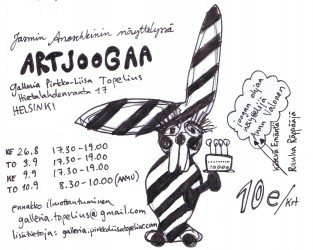 Jasmin Anoschkinin näyttelyssä
ARTJOOGAA
galleria Pirkko-Liisa Topelius
Hietalahdenranta 17
HELSINKI
KE 26.8 17.30-19.00
TO 3.9 17.30-19.00
KE 9.9 17.30-19.00
TO 10.9 8.30-10.00 (AAMU)
ennakko ilmoittautuminen
galleria.topelius@gmail.com
lisätietoja: galleria.pirkkoliisatopelius.com
joogan ohjaa
näyttelijä
Annu Valonen
Rauha Räppääjä
10e/krt